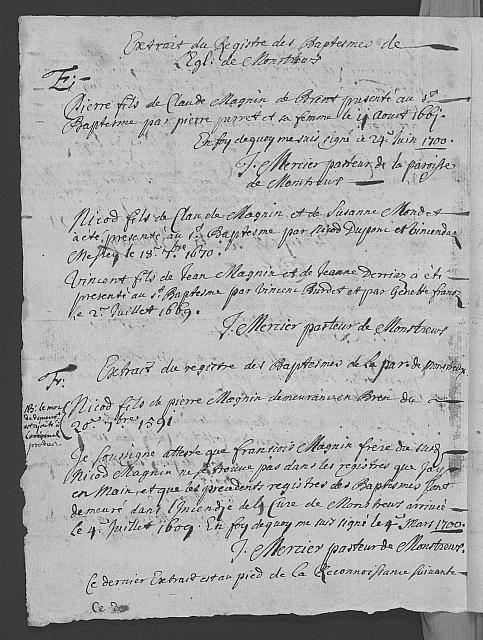 Extrait du Registre des Baptesmes de
l'Egl. de Monstreux
E.
Pierre fils de Claude Magnin de Brent presenté au St
Baptesme par pierre perret et sa femme le 4 Aout 1667.
En foy de quoy me suis signé ce 24e Juin 1700.
J. Mercier pasteur de la paroisse
de Monstreux
Nicod fils de Claude Magnin et de Susanne Mondet
a été presenté au St Baptesme par Nicod Dupont et
le 18e 7bre 1670.
Vincent fils de Jean Magnin et de Jeanne a été
presenté au St Baptesme par Vincent Burdet et par
le 2e Juillet 1669.
J. Mercier pasteur de Monstreux
F.
Extrait du registre des Baptesmes de la par. de Monstreux
Nicod fils de pierre Magnin demeurant en Bren du
20e 7bre 1591
NB. le mot
de demeurant
est ajouté à
l'original
produit
Je soussigné atteste que François Magnin frere du susd.
Nicod Magnin ne se trouve pas dans les registres que j'ay
en Main, et que les precedents registres des Baptesmes sont
demeuré dans l'incendie de la Cure de Monstreux arrivé
le 4e Juillet 1609. En foy de quoy me suis signé le 4e Mars 1700.
J. Mercier pasteur de Monstreux.
Ce dernier Extrait est au pied de la Reconnoissance suivante
Ce